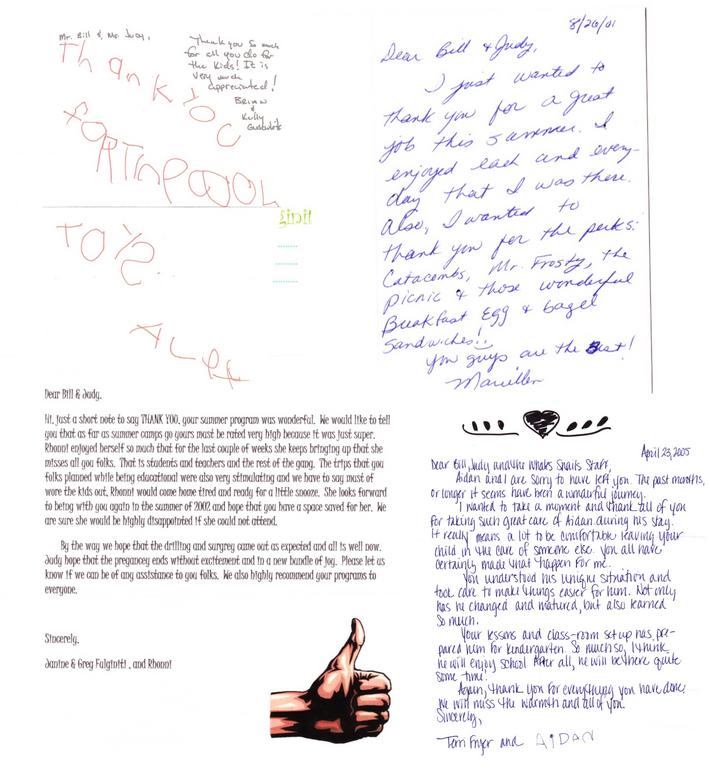 Mr. Bill & Mr. Judy,
Thank you so much
for all you do for
the kids! It is
very much
appreciated!
Brian
&
Kelly
Thank YOU
FORThePOOL
TOYS
8/26/01
Dear Bill & Judy,
I just wanted to
thank you for a great
job this summer. I
enjoyed each and every-
day that I was there.
Also, I wanted to
thank you for the perks:
Catacombs, Mr. Frosty, the
picnic & those wonderful
Breakfast Egg & bagel
sandwiches!!
You guys are the Best!
Mariellen
Dear Bill & Judy,
Hi, just a short note to say THANK YOU, your summer program was wonderful. We would like to tell
you that as far as summer camps go yours must be rated very high because it was just super.
Rhonni enjoyed herself so much that for the last couple of weeks she keeps bringing up that she
misses all you folks. That is students and teachers and the rest of the gang. The trips that you
folks planned while being educational were also very stimulating and we have to say most of
wore the kids out, Rhonni would come home tired and ready for a little snooze. She looks forward
to being with you again in the summer of 2002 and hope that you have a space saved for her. We
are sure she would be highly disappointed if she could not attend.
By the way we hope that the drilling and surgrey came out as expected and all is well now.
Judy hope that the pregancey ends without excitement and in a new bundle of joy. Please let us
know if we can be of any asststance to you folks. We also highly recommend your programs to
everyone.
Sincerely,
Janine & Greg Fulginiti , and Rhonni
April 23, 2005
Dear Bill, Judy and the Whales Snails Staff,
Aidan and I are sorry to have left you. The past months,
or longer it seems have been a wonderful journey.
I wanted to take a moment and thank all of you
for taking such great care of Aidan during his stay.
It really means a lot to be comfortable leaving your
child in the care of someone else. You all have
certainly made that happen for me.
You understood his unique situation and
took care to make things easier for him. Not only
has he changed and matured, but also learned
so much.
Your lessons and class-room set up has pre-
pared him for Kindergarten. So much so, I think
he will enjoy school. After all, he will be there quite
some time!
Again, thank you for everything you have done;
We will miss the warmth and all of you.
Sincerely,
Terri Fryer and AIDAN